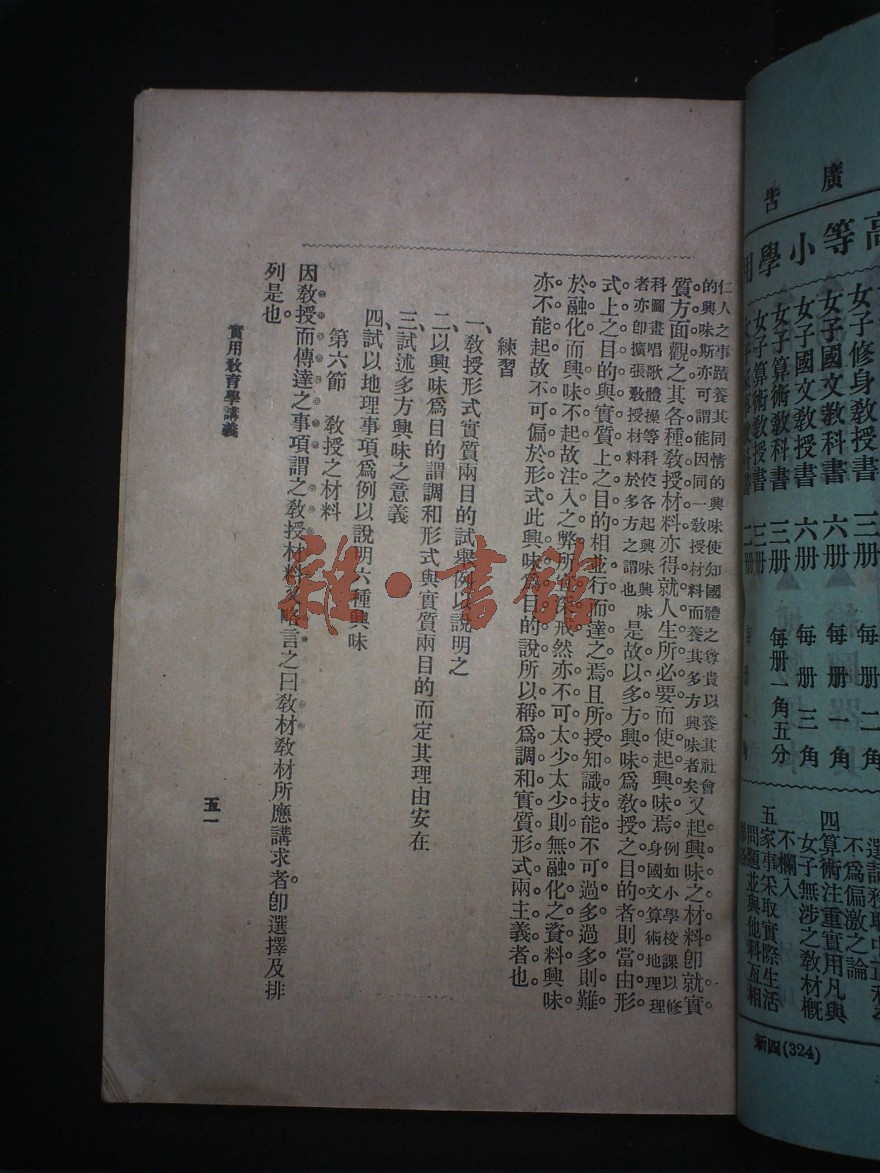 仁人之事蹟養其同情的興味使知國體之尊貴以養其社會
的興味斯亦可謂能因同一敎授材料而養其多方興味者矣
又起興味之材料卽就實
質方面觀之其各種敎授材料亦得就人生所必要而使起興味焉
例如小學校課以修
身國文算術地理理
科圖畫唱歌體操等科使各起興味興味
者亦卽擴張敎授材料於多方之謂也
是故以多方興味爲敎授之目的者則當由形
式上之目的與實質上之目的相並行而達之焉且所授知識技能不可過多過多則難
於融化而興味不起故注入之弊所宜深戒然亦不可太少太少則無融化之資料興味
亦不能起故不可偏於形式此興味爲目的說所以稱爲調和實質形式兩主義者也
練習
一、敎授形式實質兩目的試舉例以說明之
二、以興味爲目的謂調和形式與實質兩目的而定其理由安在
三、試述多方興味之意義
四、試以地理事項爲例以說明六種興味
第六節　敎授之材料
因敎授而傳達之事項謂之敎授材料又略言之曰敎材敎材所應講求者卽選擇及排
列是也。
實用敎育學講義
五一
雜·書館
廣告
高等小學用
女子修身敎授書　三册　每册二角
女子國文敎科書　六册　每册一角
女子國文敎授書　六册　每册三角
女子算術敎科書　三册　每册一角五分
女子算術敎授書　三册
不爲偏激之論
四算術注重實用凡與
女子無涉之敎材槪
不欄入
五家事采取實際生活
問題並與他科互相
新四(324)